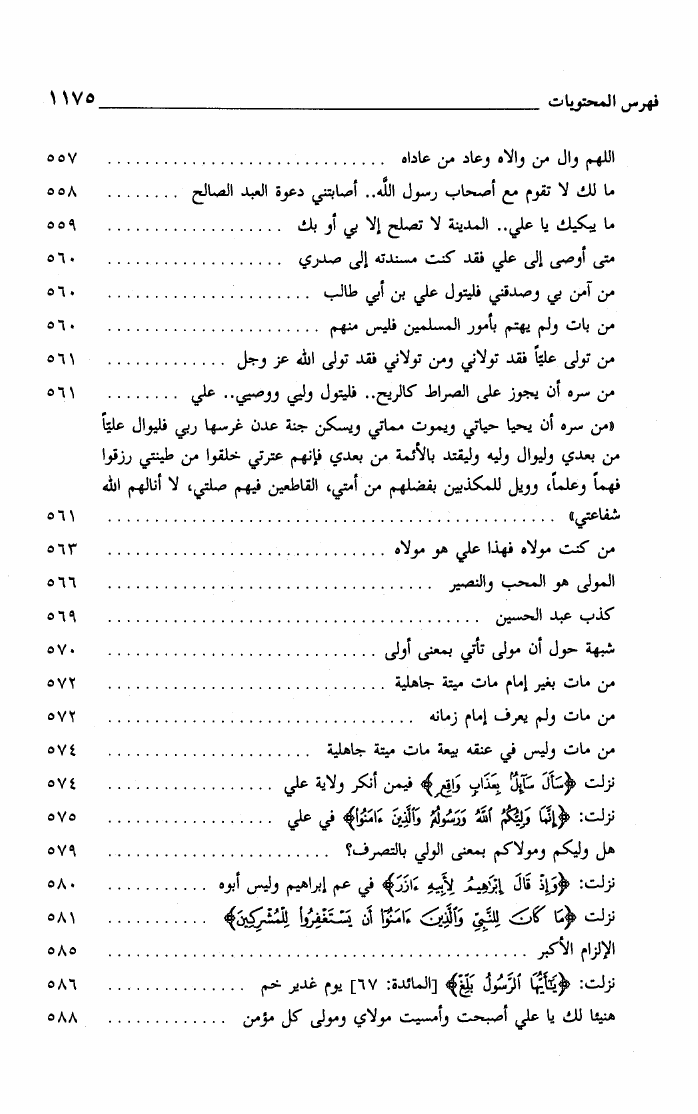 فهرس المحتويات ١١٧٥
اللهم وال من والاه وعاد من عاداه ٥٥٧
ما لك لا تقوم مع أصحاب رسول اللَّه.. أصابتني دعوة العبد الصالح ٥٥٨
ما يبكيك يا علي.. المدينة لا تصلح إلا بي أو بك ٥٥٩
متى أوصى إلى علي فقد كنت مسندته إلى صدري ٥٦٠
من آمن بي وصدقني فليتول علي بن أبي طالب ٥٦٠
من بات ولم يهتم بأمور المسلمين فليس منهم ٥٦٠
من تولى عليّاً فقد تولاني ومن تولاني فقد تولى الله عز وجل ٥٦١
من سره أن يجوز على الصراط كالريح.. فليتول وليي ووصيي.. علي ٥٦١
«من سره أن يحيا حياتي ويموت مماتي ويسكن جنة عدن غرسها ربي فليوال عليّاً
من بعدي وليوال وليه وليقتد بالأئمة من بعدي فإنهم عترتي خلقوا من طينتي رزقوا
فهماً وعلماً، وويل للمكذبين بفضلهم من أمتي، القاطعين فيهم صلتي، لا أنالهم الله
شفاعتي» ٥٦١
من كنت مولاه فهذا علي هو مولاه ٥٦٣
المولى هو المحب والنصير ٥٦٦
كذب عبد الحسين ٥٦٩
شبهة حول أن مولى تأتي بمعنى أولى ٥٧٠
من مات بغير إمام مات ميتة جاهلية ٥٧٢
من مات ولم يعرف إمام زمانه ٥٧٢
من مات وليس في عنقه بيعة مات ميتة جاهلية ٥٧٤
نزلت ﴿سَأَلَ سَآئِلٌۢ بِعَذَابٍ وَاقِعٍ﴾ فيمن أنكر ولاية علي ٥٧٤
نزلت: ﴿إِنَّمَا وَلِيُّكُمُ ٱللَّهُ وَرَسُولُهُۥ وَٱلَّذِينَ ءَامَنُوا۟﴾ في علي ٥٧٥
هل وليكم ومولاكم بمعنى الولي بالتصرف؟ ٥٧٩
نزلت: ﴿وَإِذْ قَالَ إِبْرَٰهِيمُ لِأَبِيهِ ءَازَرَ﴾ في عم إبراهيم وليس أبوه ٥٨٠
نزلت ﴿مَا كَانَ لِلنَّبِيِّ وَٱلَّذِينَ ءَامَنُوٓا۟ أَن يَسْتَغْفِرُوا۟ لِلْمُشْرِكِينَ﴾ ٥٨١
الإلزام الأكبر ٥٨٥
نزلت: ﴿يَٰٓأَيُّهَا ٱلرَّسُولُ بَلِّغْ﴾ [المائدة: ٦٧] يوم غدير خم ٥٨٦
هنيئا لك يا علي أصبحت وأمسيت مولاي ومولى كل مؤمن ٥٨٨